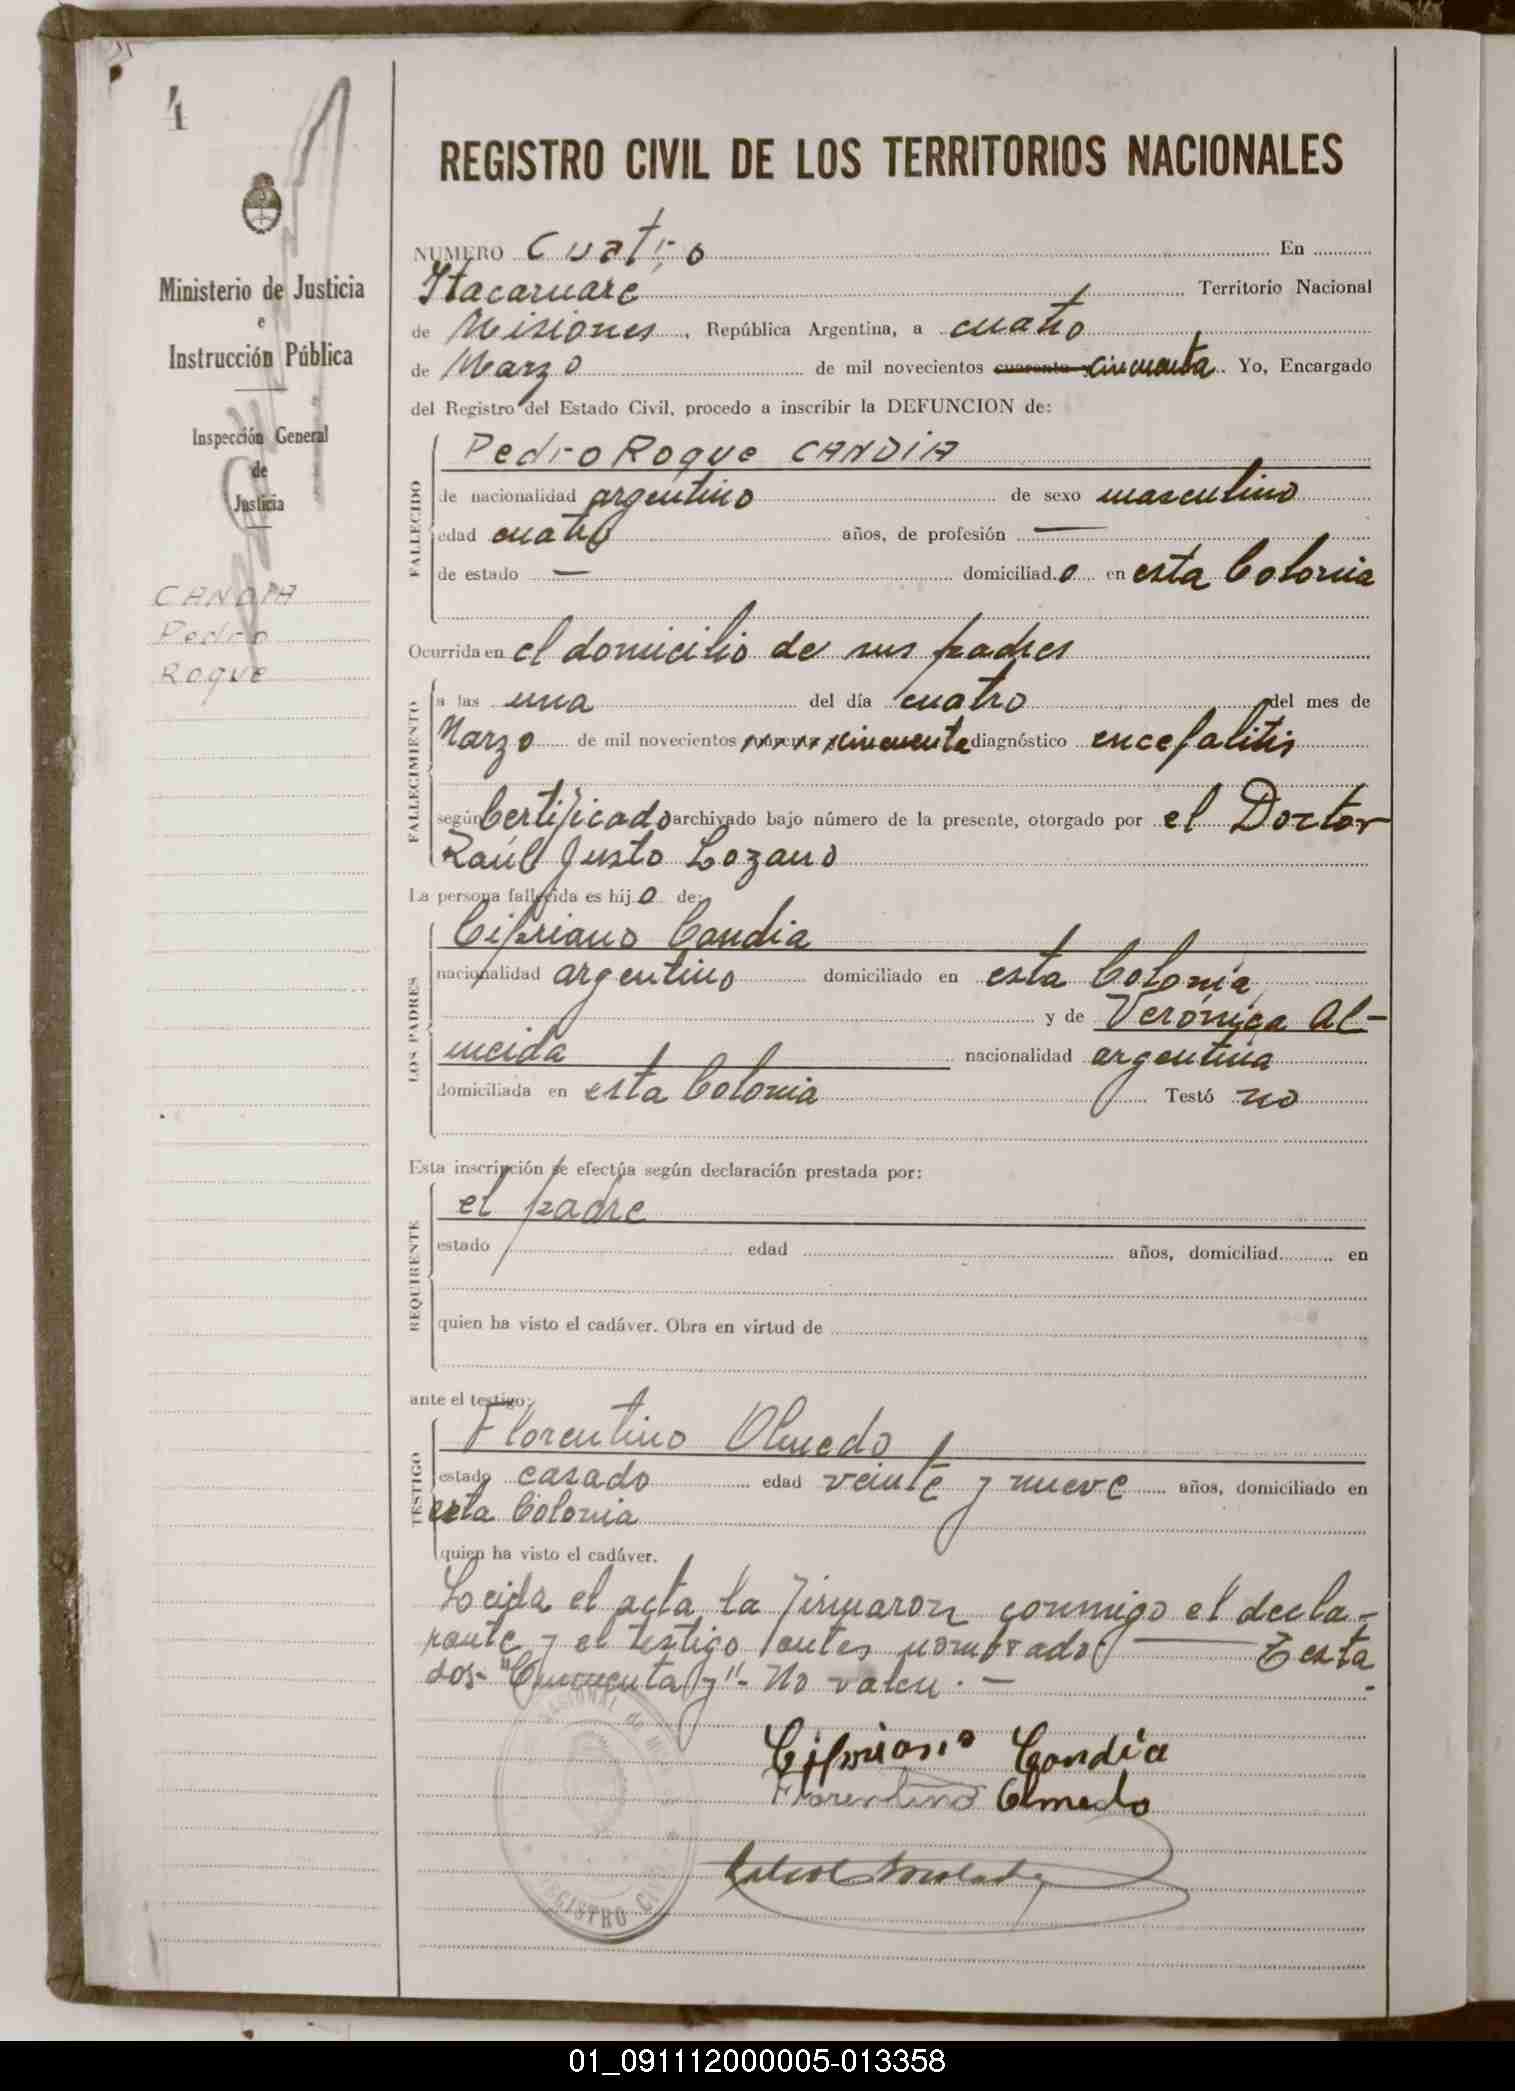 4
REGISTRO CIVIL DE LOS TERRITORIOS NACIONALES
Ministerio de Justicia
e
Instrucción Pública
Inspección General
de
Justicia
CANDIA
Pedro
Roque
NUMERO Cuatro En
Itacaruaré Territorio Nacional
de Misiones, República Argentina, a cuatro
de Marzo de mil novecientos cuarenta cincuenta. Yo, Encargado
del Registro del Estado Civil, procedo a inscribir la DEFUNCION de:
FALLECIDO
Pedro Roque CANDIA
de nacionalidad argentino de sexo masculino
edad cuatro años, de profesión —
de estado — domiciliado en esta Colonia
Ocurrida en el domicilio de sus padres
FALLECIMIENTO
a las una del día cuatro del mes de
Marzo de mil novecientos cincuenta diagnóstico encefalitis
según Certificado archivado bajo número de la presente, otorgado por el Doctor
Raúl Justo Lozano
La persona fallecida es hijo de:
LOS PADRES
Cipriano Candia
nacionalidad argentino domiciliado en esta Colonia
y de Verónica Al-
meida nacionalidad argentina
domiciliada en esta Colonia Testó no
Esta inscripción se efectúa según declaración prestada por:
REQUIRENTE
el padre
estado edad años, domiciliad en
quien ha visto el cadáver. Obra en virtud de
ante el testigo:
TESTIGO
Florentino Olmedo
estado casado edad veinte y nueve años, domiciliado en
esta Colonia
quien ha visto el cadáver.
Leida el acta la firmaron conmigo el decla-
rante y el testigo antes nombrado — Testa
dos- "Cuarenta y"- No valen. —
Cipriano Candia
Florentino Olmedo
REGISTRO CIVIL
01_091112000005-013358